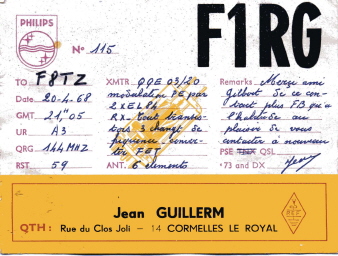 PHILIPS
F1RG
N° 115
TO F8TZ
Date 20-4-68
GMT 21"05
UR A3
QRG 144 MHZ
RST 59
XMTR QQE 03/20
modulation PE par
2 x EL84
RX - tout transis-
tors 3 changt de
fréquence conver-
ter FET
ANT. 6 elements
Remarks Merci ami
Gilbert de ce con-
tact plus FB qu'a
l'habitude au
plaisir de vous
contacter à nouveau
PSE TNX QSL
73 and DX
Jean GUILLERM
QTH : Rue du Clos Joli - 14 CORMELLES LE ROYAL
REF